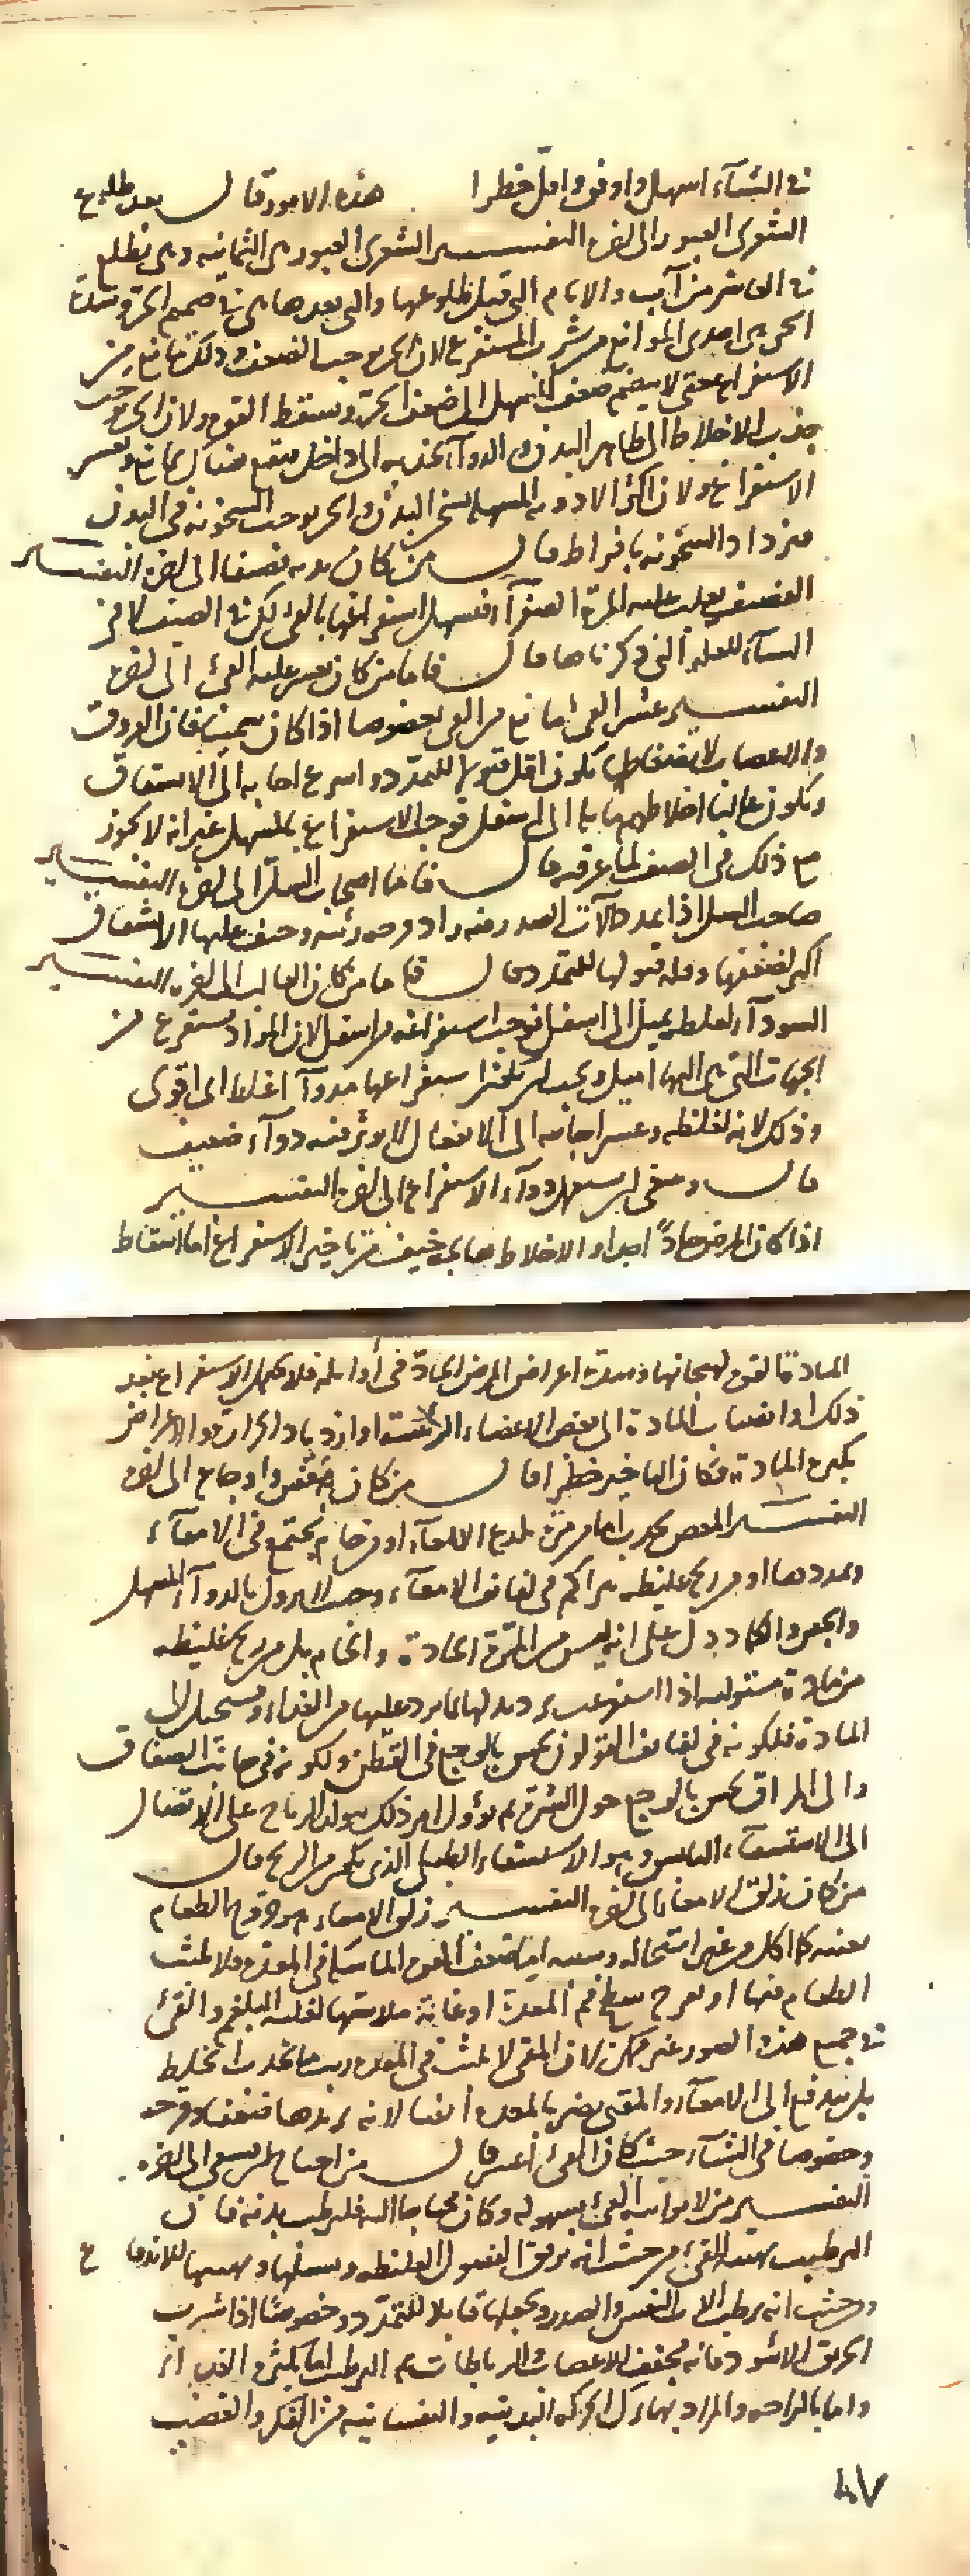 في الشتاء اسهل واوفق واقل خطرا هذه الامور قال بعد طلوع
الشعرى العبور الى اخره التفسير الشعرى العبور هي اليمانيه وهي تطلع
في العاشر من آب والايام التي قبل طلوعها والتي بعدها هي في صميم الحر وشدة
الحر هي احدى الموانع من شرب المستفرغ لان الحر يوجب الضعف وذلك مانع من
الاستفراغ حتى لا ينضم ضعف المسهل الى ضعف الحر وتسقط القوه ولان الحر يوجب
جذب الاخلاط الى ظاهر البدن والدواء يجذب الى داخل فيقع هناك تمانع ويعسر
الاستفراغ ولان اكثر الادويه المسهله يسخن البدن والحر يوجب السخونه في البدن
فتزداد السخونه بافراط قال من كان بدنه قضيفا الى اخره التفسير
القضيف يغلب عليه المرة الصفراء فيسهل استفراغها بالقئ لكن في الصيف لا في
الشتاء للعله التي ذكرناها قال فاما من كان يعسر عليه القئ الى اخره
التفسير عسر القئ مانع من القئ خصوصا اذا كان سمينا فان العروق
والاعصاب لانضغاطها تكون اقل قبولا للتمدد واسرع اجابه الى الانشقاق
وتكون غالبا اخلاطهم مايله الى اسفل فوجب الاستفراغ بالمسهل غير انه لا يجوز
مع ذلك في الصيف لما عرفته قال فاما اصحاب السل الى اخره التفسير
صاحب السل اذا تمدد آلات الصدر منه زاد قرحه رئته وخيف عليها الانشقاق
اكثر لضعفها وقله قبولها للتمدد قال فاما من كان الغالب الى اخره التفسير
السوداء لغلظه يميل الى اسفل فوجب استفراغه من اسفل لان المواد يستفرغ من
الجهات التي هي اليها اميل ويجب ان يكون استفراغها بدواء اغلظ اي اقوى
وذلك لانه لغلظه وعسر اجابته الى الانفعال لا يؤثر فيه دواء ضعيف
قال وينبغي ان يستعمل دواء الاستفراغ الى اخره التفسير
اذا كان المرض حادا جدا والاخلاط هايجه خيف من تاخير الاستفراغ اما اسقاط
المادة للقوه لهيجانها وشدة اعراض المرض الحادة في اوايله فلا يحتمل الاستفراغ بعد
ذلك او انصباب المادة الى بعض الاعضاء الرئيسة او ازدياد الحرارة والاعراض
بكثرة المادة فكان التاخير خطرا قال من كان به مغس واوجاع الى اخره
التفسير المغص يحدث اما من مرة تلذع الامعاء او من خام يجتمع في الامعاء
ويمددها او من ريح غليظه يتراكم في لفايف الامعاء وحيث لا يزول بالدواء المسهل
والحقن والكماد دل على انه ليس من المرة الحادة والخام بل من ريح غليظه
من مادة مستوليه اذا استفرغت برد بدلها بما يرد عليها من الغذاء ويستحيل الى
المادة فلكونه في لفايف القولون يحس بالوجع في القطن ولكونه في جانب الصفاق
والى المراق يحس بالوجع حول السره ثم يؤول امر ذلك بتولد الرياح على الاتصال
الى الاستسقاء اليابس وهو الاستسقاء الطبلي الذي يكون من الريح قال
من كان به زلق الامعاء الى اخره التفسير زلق الامعاء هو خروج الطعام
بعينه كما اكل من غير استحاله وسببه اما ضعف القوه الماسكه في المعده فلا يلبث
الطعام فيها او قروح سطح فم المعدة او غاية ملاستها لغلبه البلغم والقئ
في جميع هذه الصور غير ممكن لان المقئ لا يلبث في المعده ريث ما يجذب الخلط
بل يندفع الى الامعاء والمقئ يضر بالمعده ايضا لانه يزيدها ضعفا وقرحه
وخصوصا في الشتاء حيث كان القئ اعسر قال من احتاج لان يسقى الى اخره
التفسير من لا يواتيه القئ بسهوله وكان محتاجا اليه فليرطب بدنه فان
الترطيب يهيئه للقئ من حيث انه يرقق الفضول الغليظه ويسيلها ويهيئها للاندفاع
وحيث انه يرطب الات النفس والصدر ويجعلها قابلا للتمدد وخصوصا اذا شرب
الخربق الاسود فانه يجفف الاعصاب والرباطات ثم الترطيب اما بكثرة الغذاء
واما بالراحه والمراد بها ترك الحركه البدنيه والنفسانيه من الفكر والغضب
٨٧